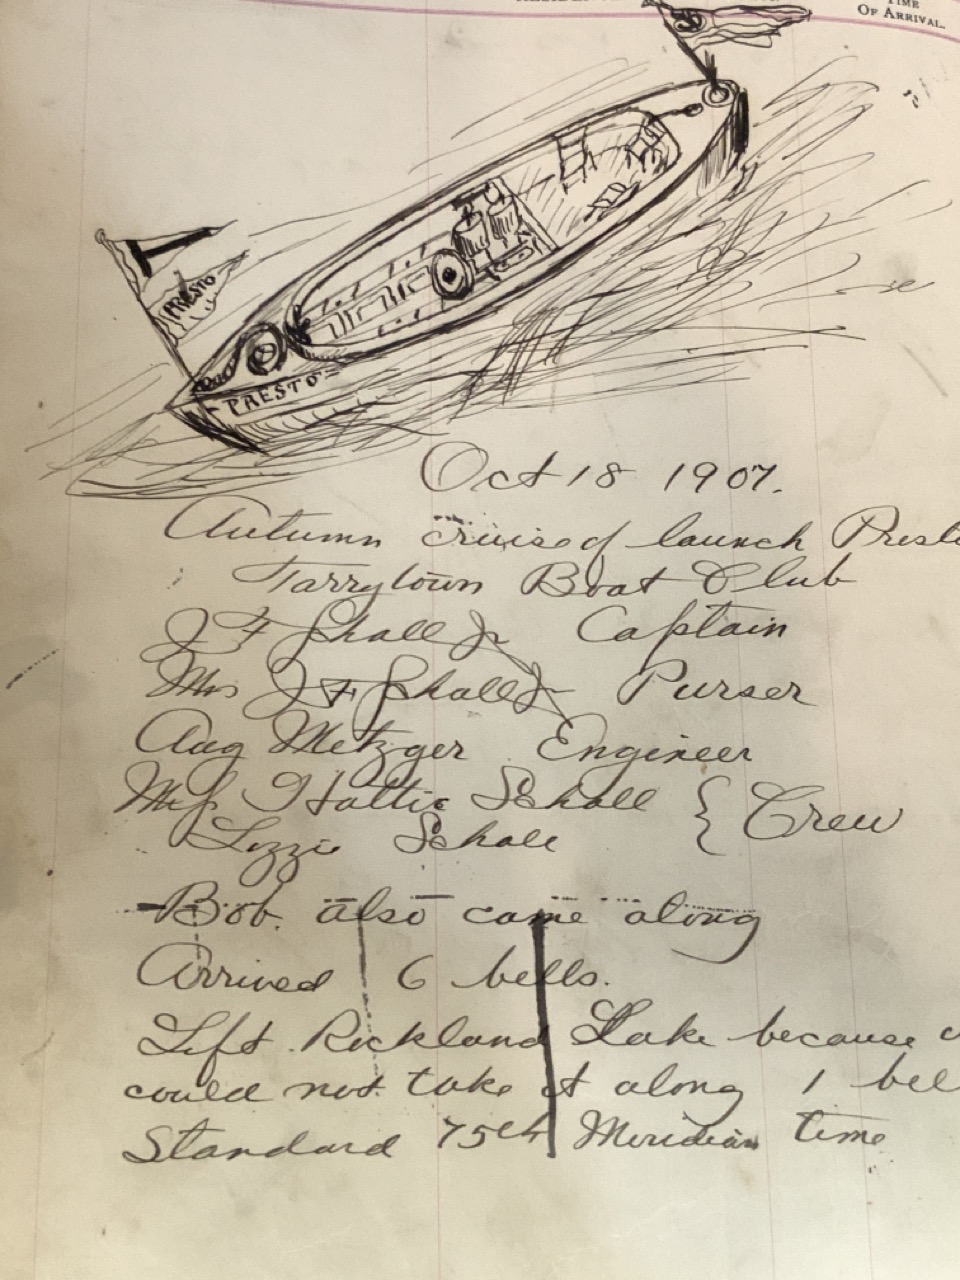 TIME
OF ARRIVAL.
PRESTO
PRESTO
Oct 18 1907.
Autumn cruise of launch Presto
Tarrytown Boat Club
J F Schall Jr Captain
Mrs J F Schall Jr Purser
Aug Metzger Engineer
Miss Hattie Schall } Crew
Lizzie Schall
Bob. also came along
Arrived 6 bells.
Left Rockland Lake because
could not take it along 1 bell
Standard 75th Meridian time